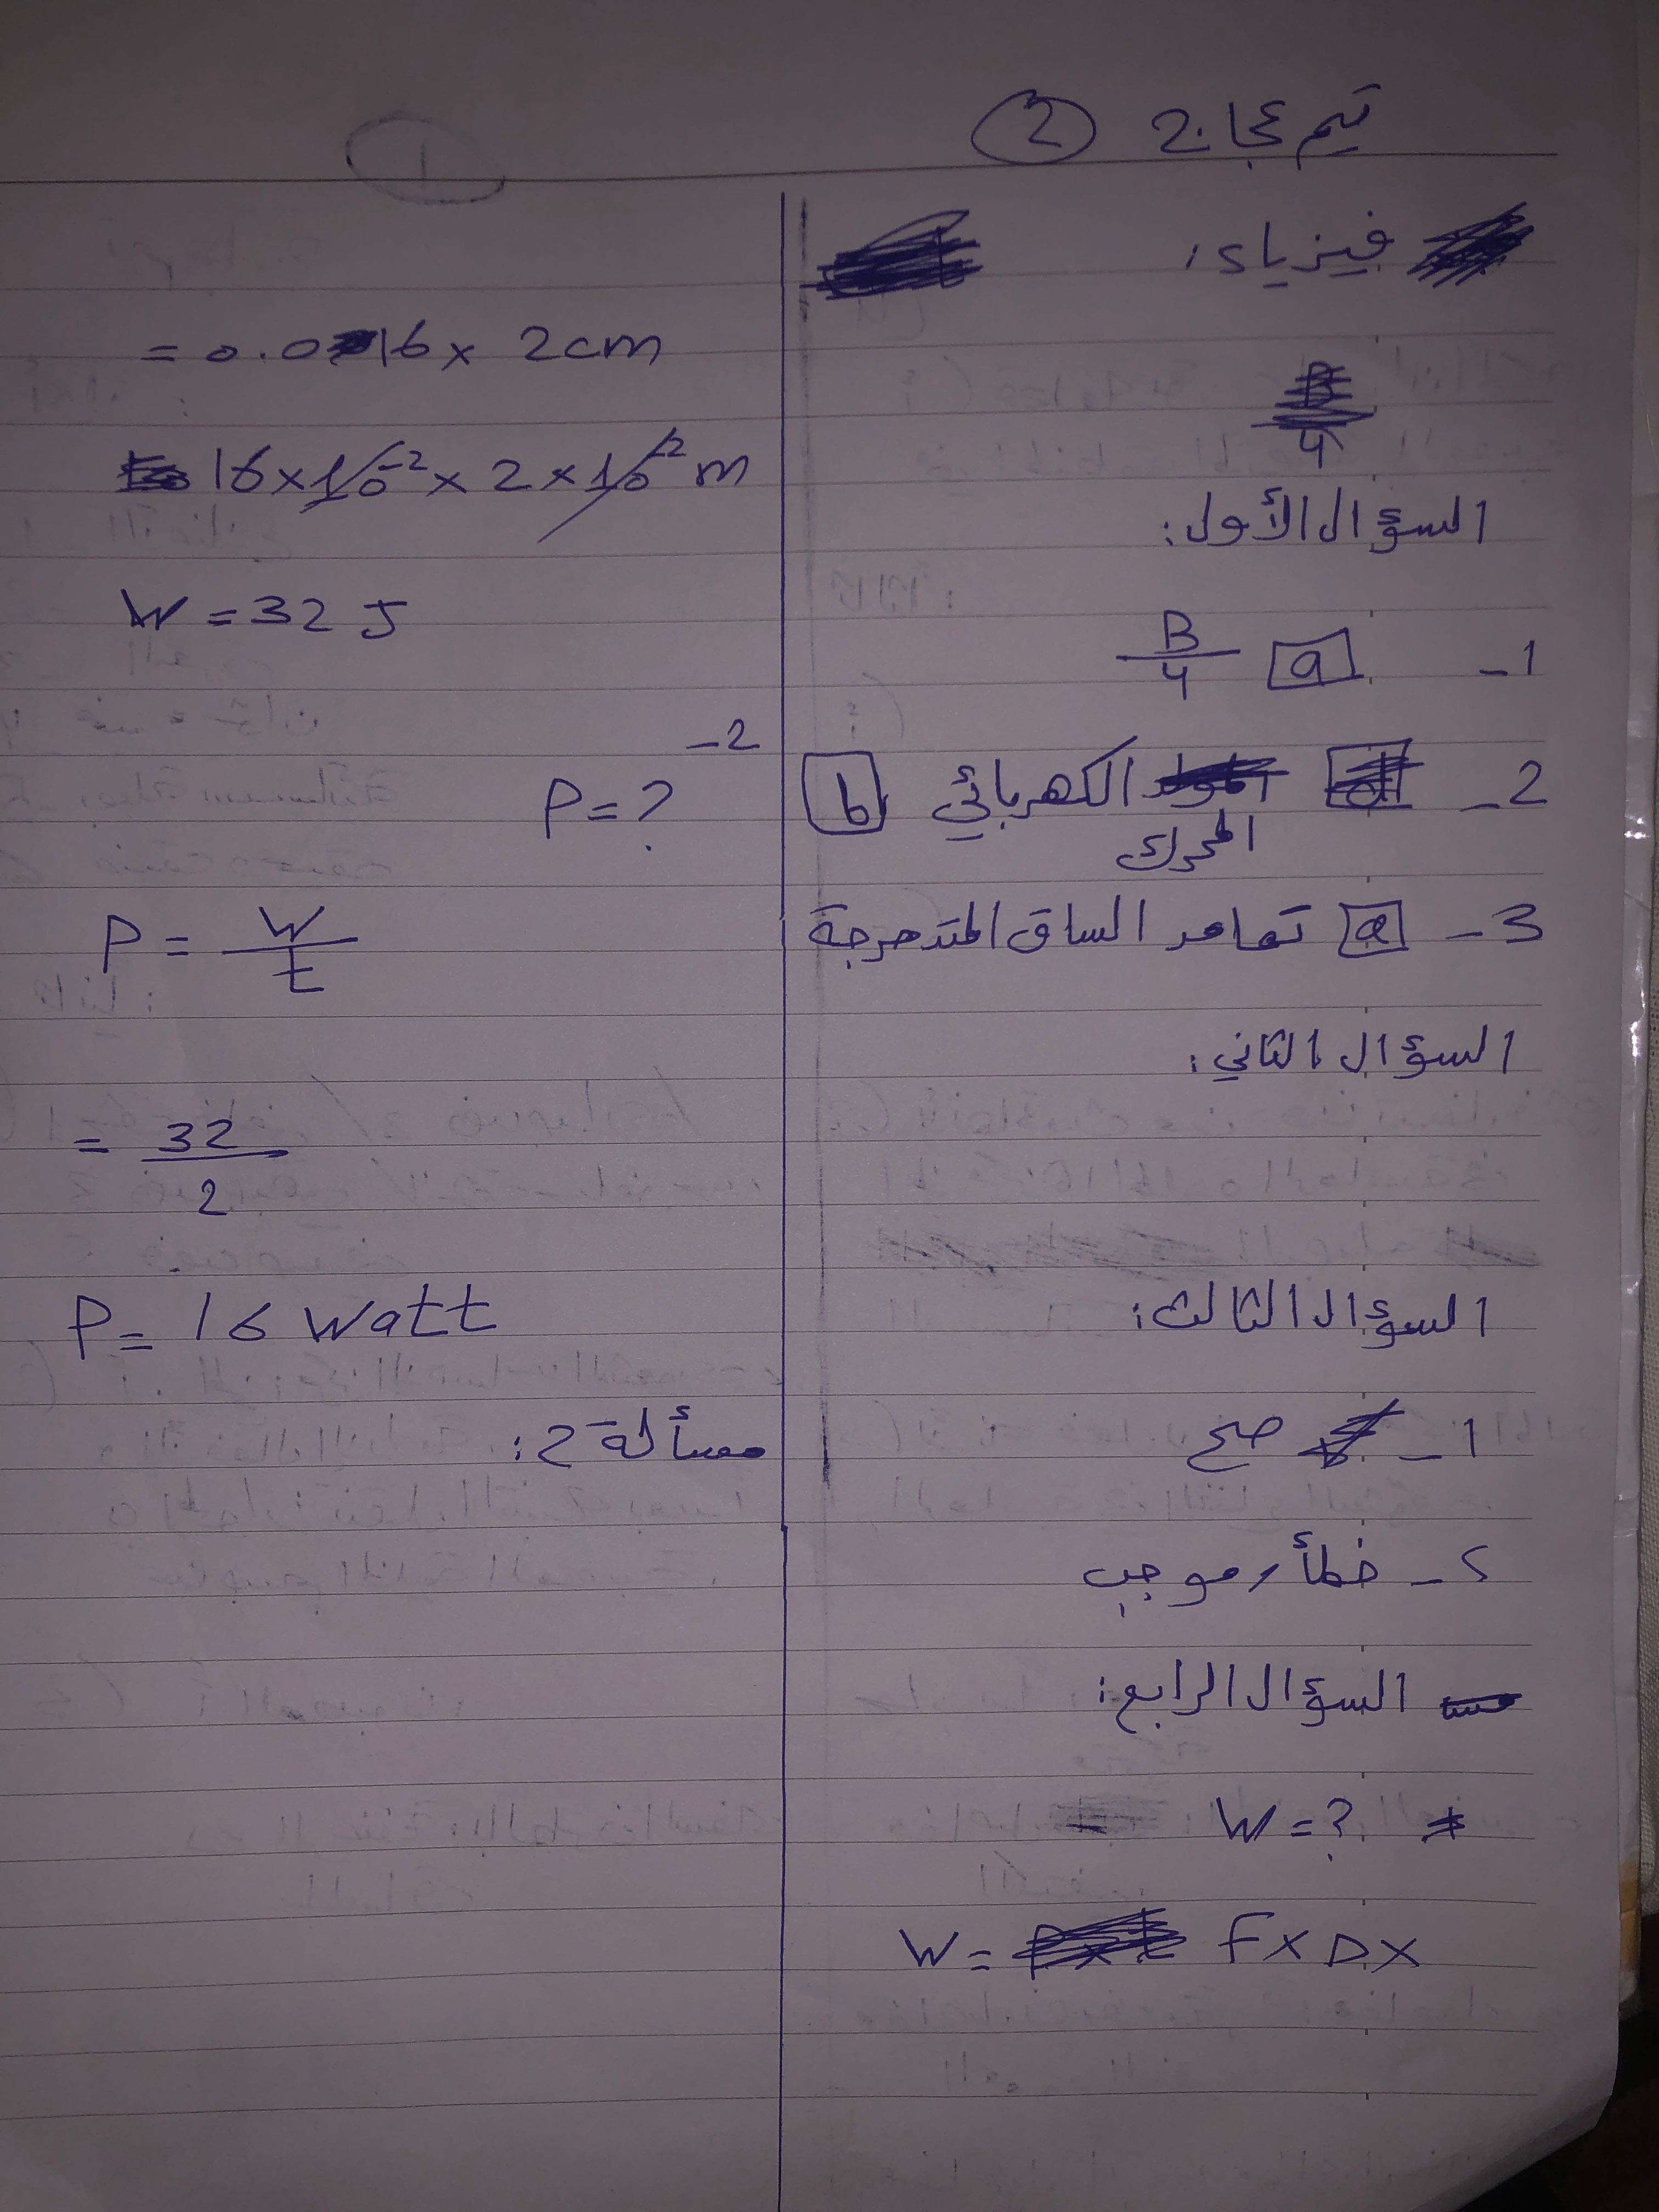 تيم عجاج 2
فيزياء:
السؤال الأول:
1- a B/4
2- المحرك الكهربائي b
3- a تعامد الساق المتدحرجة
السؤال الثاني:
السؤال الثالث:
1- صح
2- خطأ، موجب
السؤال الرابع:
* W=?
W= F×Δx
1
= 0.016 × 2cm
16×10⁻²×2×10⁻² m
W = 32 J
2-
P=?
P = W/t
= 32/2
P= 16 Watt
مسألة 2: